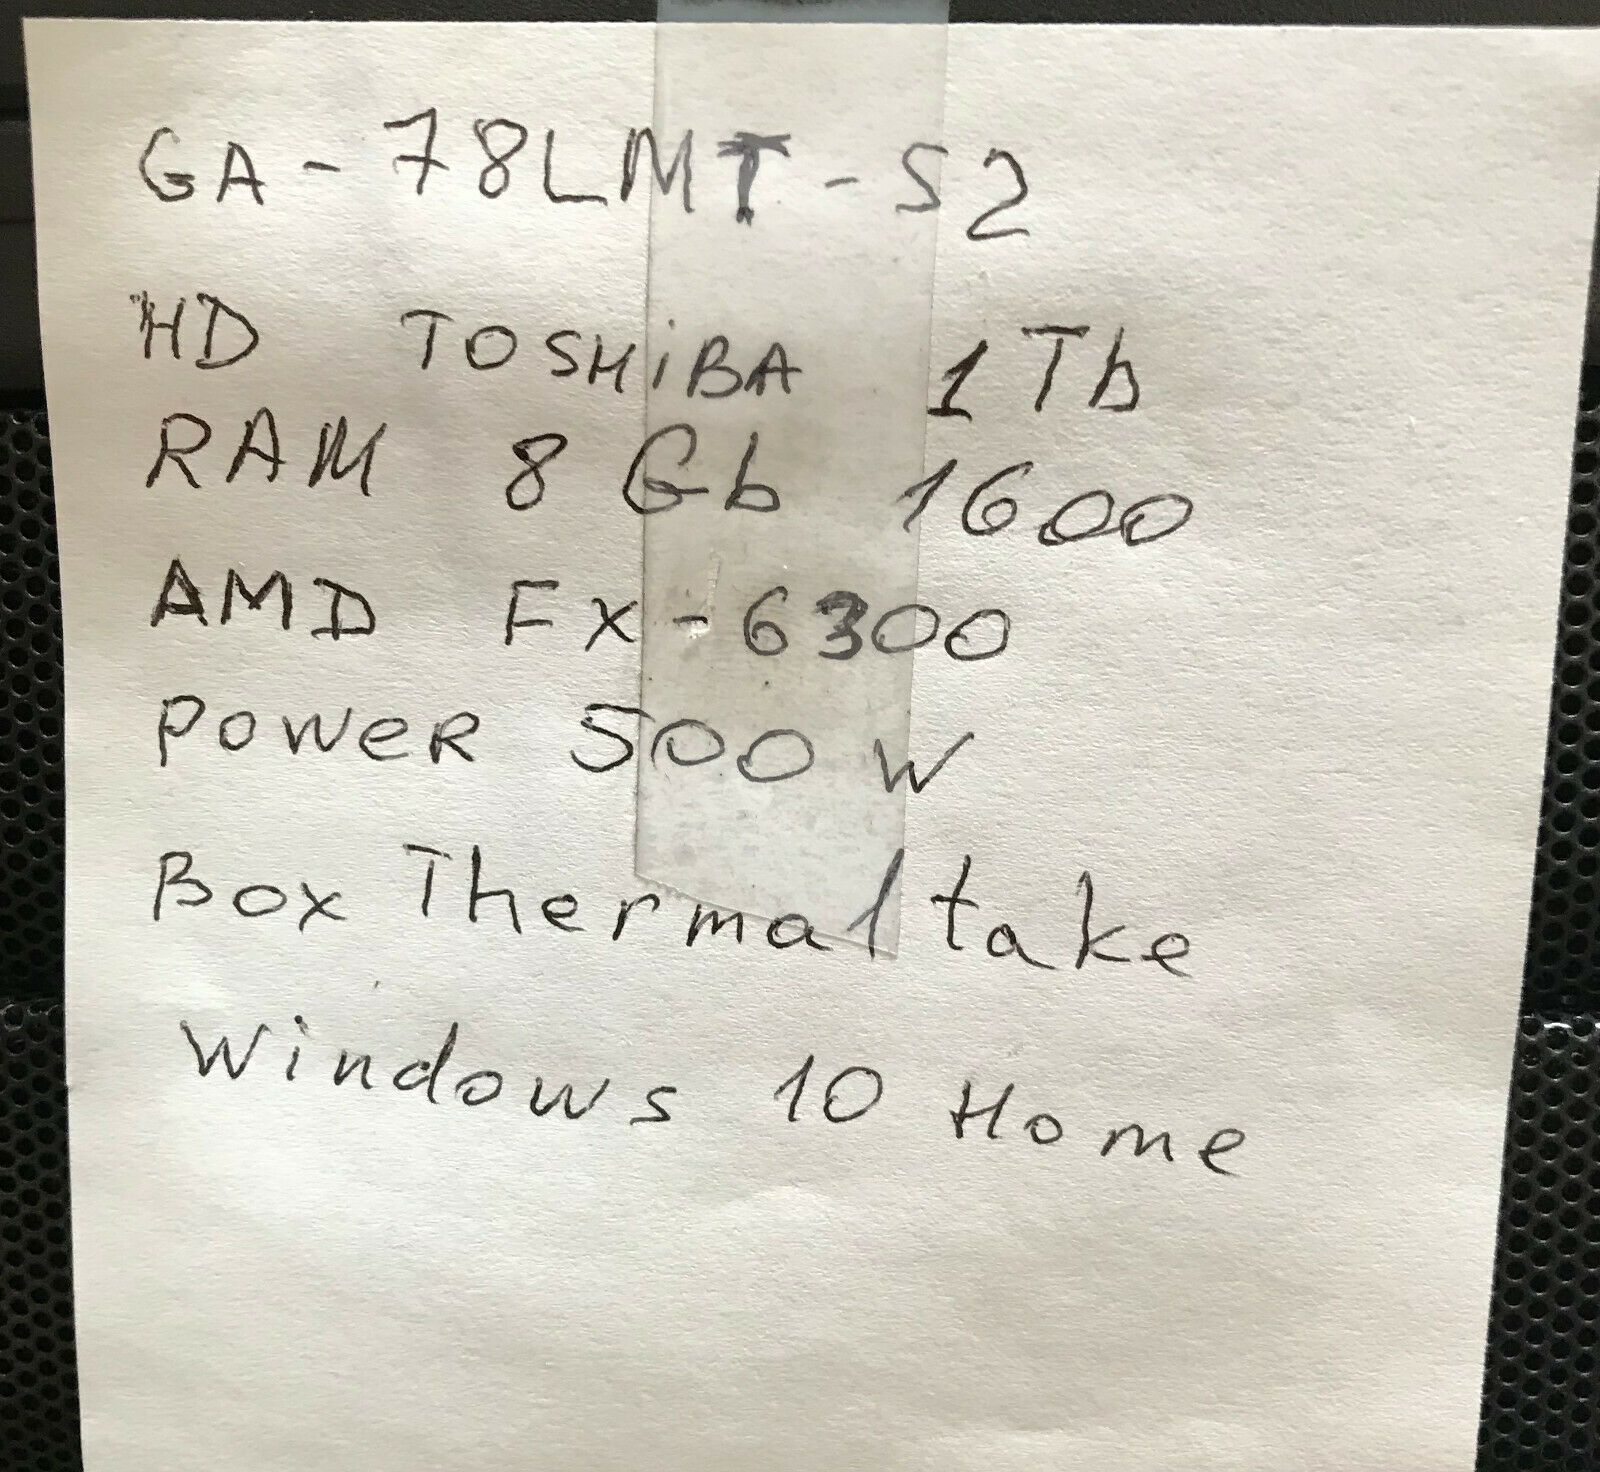 GA-78LMT-S2
HD TOSHiBA 1Tb
RAM 8Gb 1600
AMD FX-6300
POWeR 500W
Box Thermaltake
Windows 10 Home